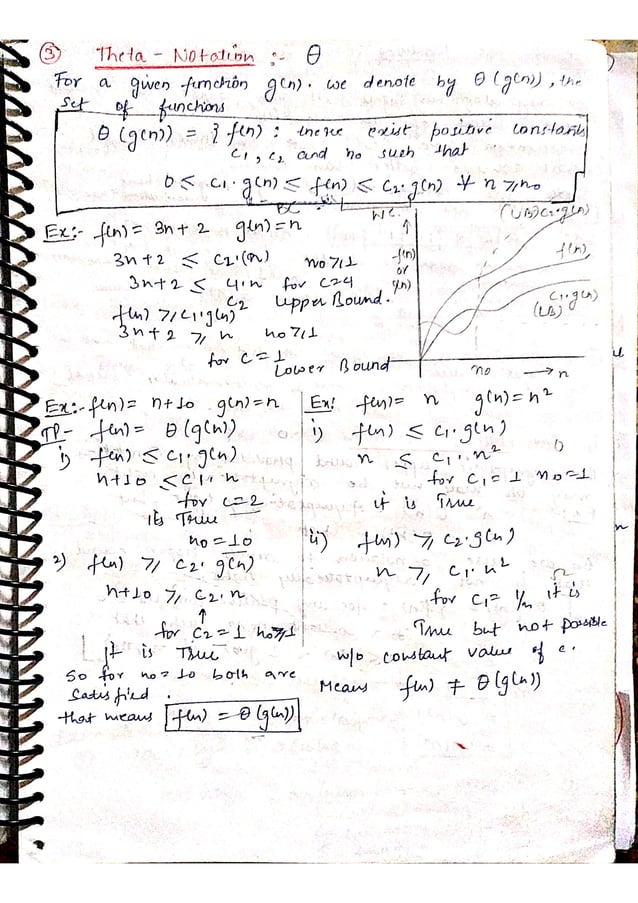 ③ Theta - Notation :- θ
For a given function g(n). we denote by θ(g(n)), the
set of functions
θ(g(n)) = { f(n) : there exist positive constants
c1, c2 and no such that
0 ≤ c1.g(n) ≤ f(n) ≤ c2.g(n) ∀ n ≥ no
BC WC
Ex:- f(n) = 3n+2 g(n) = n
3n+2 ≤ c2.(n) no ≥ 1
3n+2 ≤ 4.n for c=4
c2 Upper Bound.
f(n) ≥ c1.g(n)
3n+2 ≥ n no ≥ 1
for c=1
Lower Bound
(UB) c2.g(n)
↑
f(n)
or
f(n)
c1.g(n)
(LB)
no → n
Ex:- f(n) = n+10 g(n) = n
TP- f(n) = θ(g(n))
i) f(n) ≤ c1.g(n)
n+10 ≤ c1.n
for c=2
its True
no=10
2) f(n) ≥ c2.g(n)
n+10 ≥ c2.n
↑
for c2=1 no≥1
It is True
So for no=10 both are
satisfied.
that means f(n) = θ(g(n))
Ex! f(n) = n g(n) = n²
i) f(n) ≤ c1.g(n) O
n ≤ c1.n²
for c1=1 no=1
it is True
ii) f(n) ≥ c2.g(n)
n ≥ c1.n² Ω
for c1=1/n it is
True but not possible
w/o constant value of c.
Means f(n) ≠ θ(g(n))